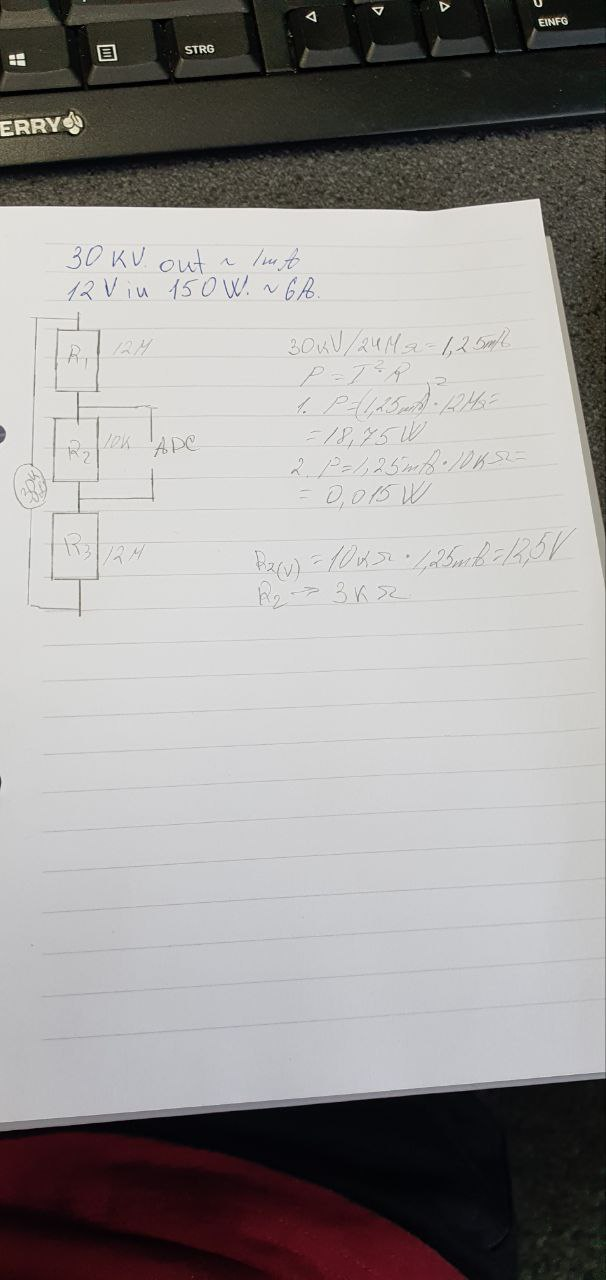 STRG
EINFG
ERRY
30 KV. out ~ 1mA
12 V in 150 W. ~ 6A.
R1 12M
R2 10K ADC
R3 12M
30kV/24MΩ = 1,25mA
P = I²·R
1. P=(1,25mA)²·12MΩ=
= 18,75 W
2. P=1,25mA·10KΩ=
= 0,015 W
R2(V) = 10KΩ · 1,25mA = 12,5V
R2 → 3KΩ